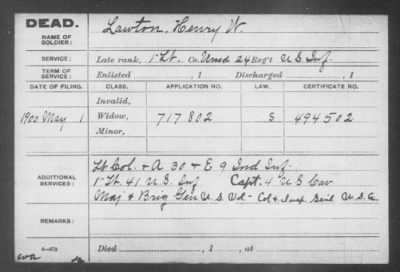 DEAD.
NAME OF SOLDIER: Lawton, Henry W.
SERVICE: Late rank, 1" Lt. Co. Unasd 24 Reg't U S Inf.
TERM OF SERVICE: Enlisted , 1 Discharged , 1
DATE OF FILING. CLASS. APPLICATION NO. LAW. CERTIFICATE NO.
Invalid,
1900 May 1 Widow, 717802 S 494502
Minor,
Lt Col. & A 30 & E 9 Ind Inf.
ADDITIONAL SERVICES: 1" Lt. 41 U.S. Inf Capt. 4" U S Cav
Maj & Brig Gen U.S. Vol - Col & Insp Genl U.S.A.
REMARKS:
Died , 1 , at